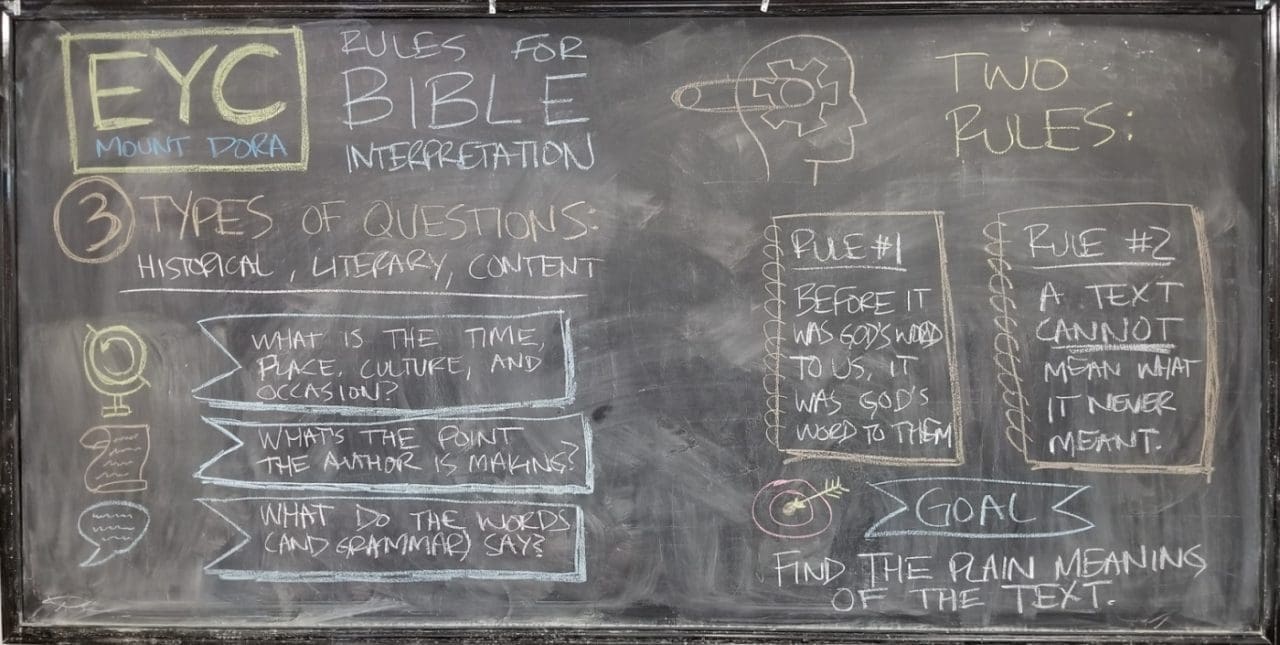 EYC
MOUNT DORA
RULES FOR
BIBLE
INTERPRETATION
3 TYPES OF QUESTIONS:
HISTORICAL, LITERARY, CONTENT
WHAT IS THE TIME,
PLACE, CULTURE, AND
OCCASION?
WHAT'S THE POINT
THE AUTHOR IS MAKING?
WHAT DO THE WORDS
(AND GRAMMAR) SAY?
TWO
RULES:
RULE #1
BEFORE IT
WAS GOD'S WORD
TO US, IT
WAS GOD'S
WORD TO THEM
RULE #2
A TEXT
CANNOT
MEAN WHAT
IT NEVER
MEANT.
GOAL
FIND THE PLAIN MEANING
OF THE TEXT.